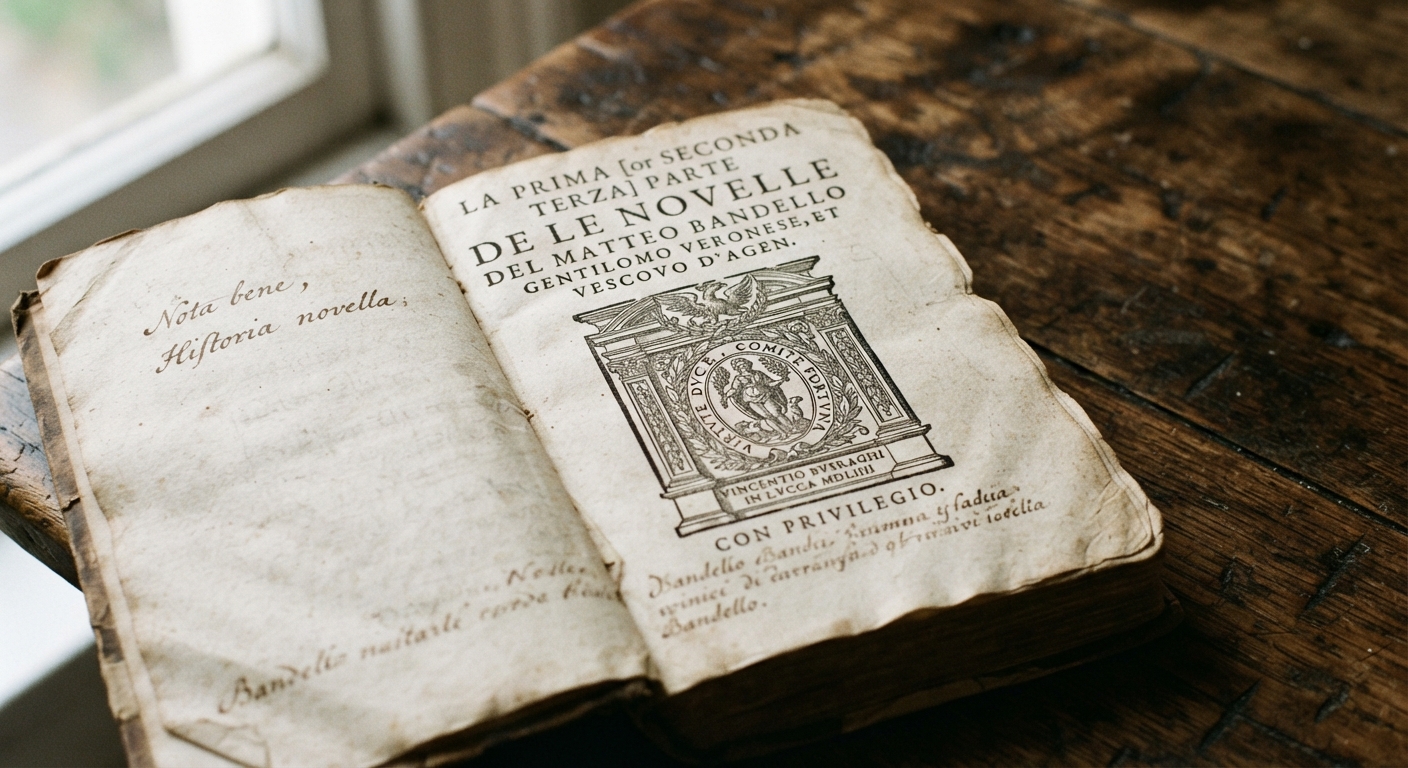 Nota bene,
Hiſtoria novella;
LA PRIMA [or SECONDA
TERZA] PARTE
DE LE NOVELLE
DEL MATTEO BANDELLO
GENTILOMO VERONESE, ET
VESCOVO D'AGEN.
VIRTVTE DVCE, COMITE FORTVNA
VINCENTIO BVSRAGHI
IN LVCCA MDLIIII
CON PRIVILEGIO.
Bandello
di
Bandello.